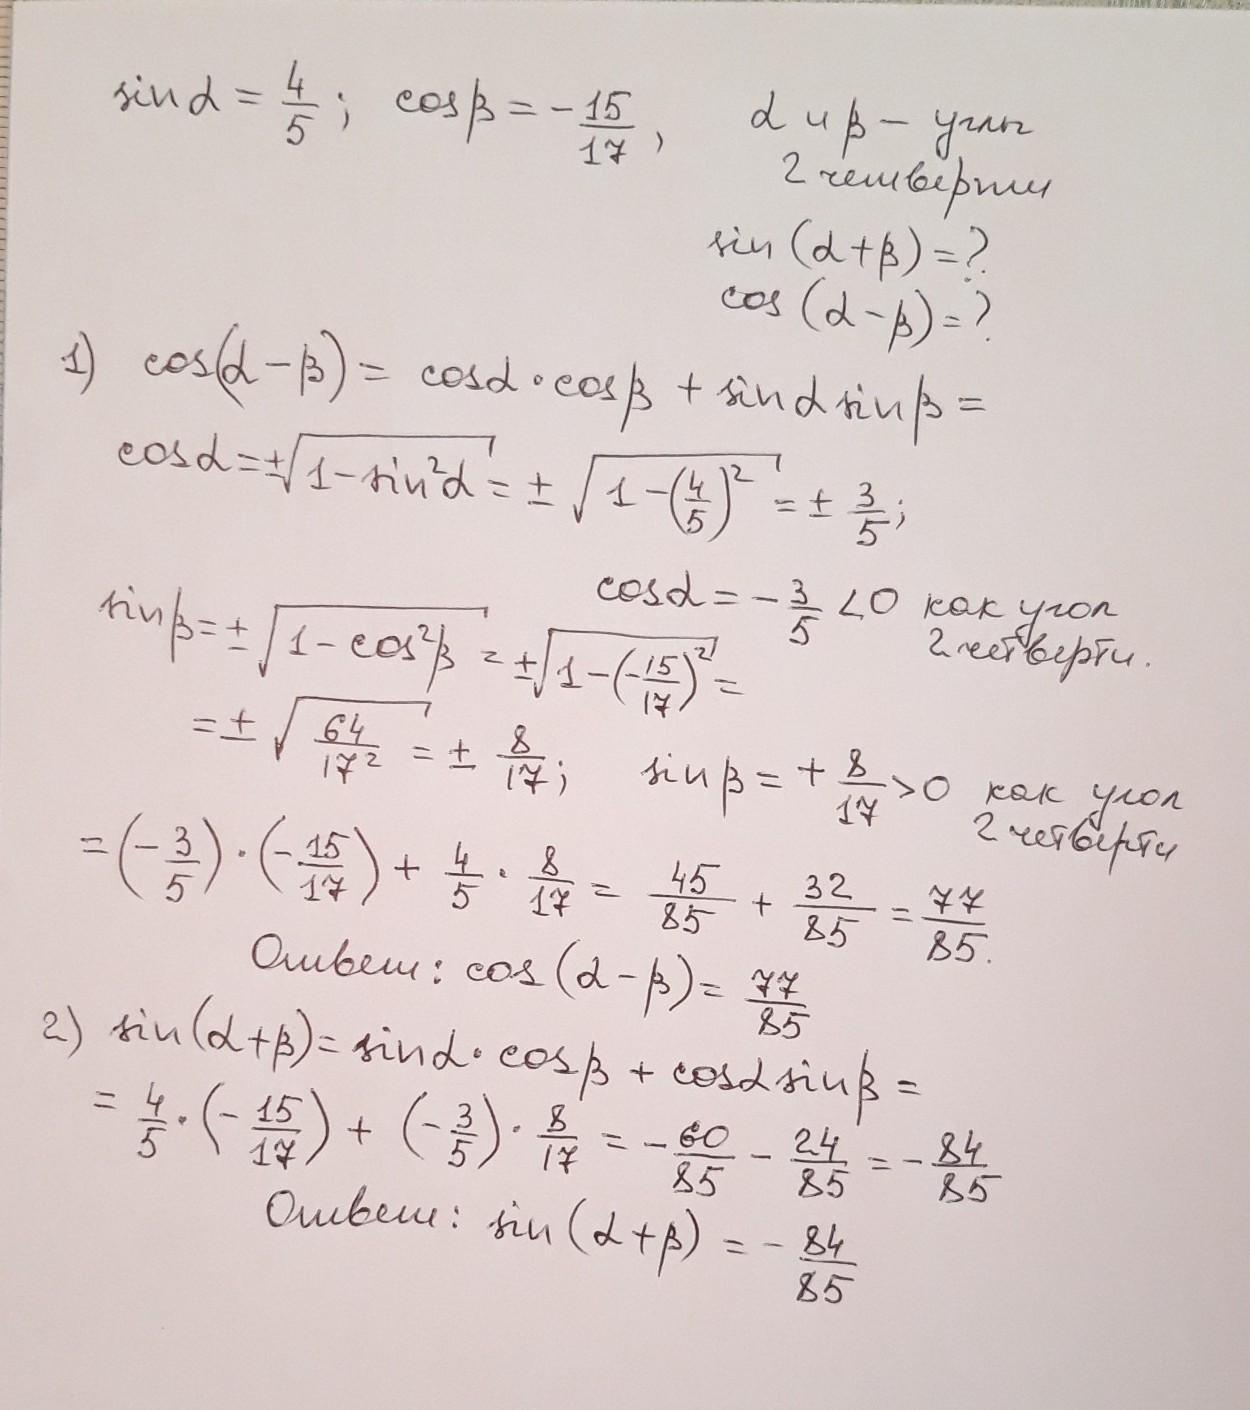 sin α = 4/5 ; cos β = -15/17, α и β – углы
2 четверти
sin (α+β) = ?
cos (α-β) = ?
1) cos(α-β) = cosα · cosβ + sinα sinβ =
cosα = ±√(1-sin²α) = ±√(1-(4/5)²) = ± 3/5 ;
cosα = - 3/5 <0 как угол
2 четверти.
sinβ = ±√(1-cos²β) = ±√(1-(-15/17)²) =
= ±√(64/17²) = ± 8/17 ; sinβ = + 8/17 >0 как угол
2 четверти
= (-3/5) · (-15/17) + 4/5 · 8/17 = 45/85 + 32/85 = 77/85.
Ответ: cos (α-β) = 77/85
2) sin(α+β) = sinα · cosβ + cosα sinβ =
= 4/5 · (-15/17) + (-3/5) · 8/17 = - 60/85 - 24/85 = - 84/85
Ответ: sin (α+β) = - 84/85